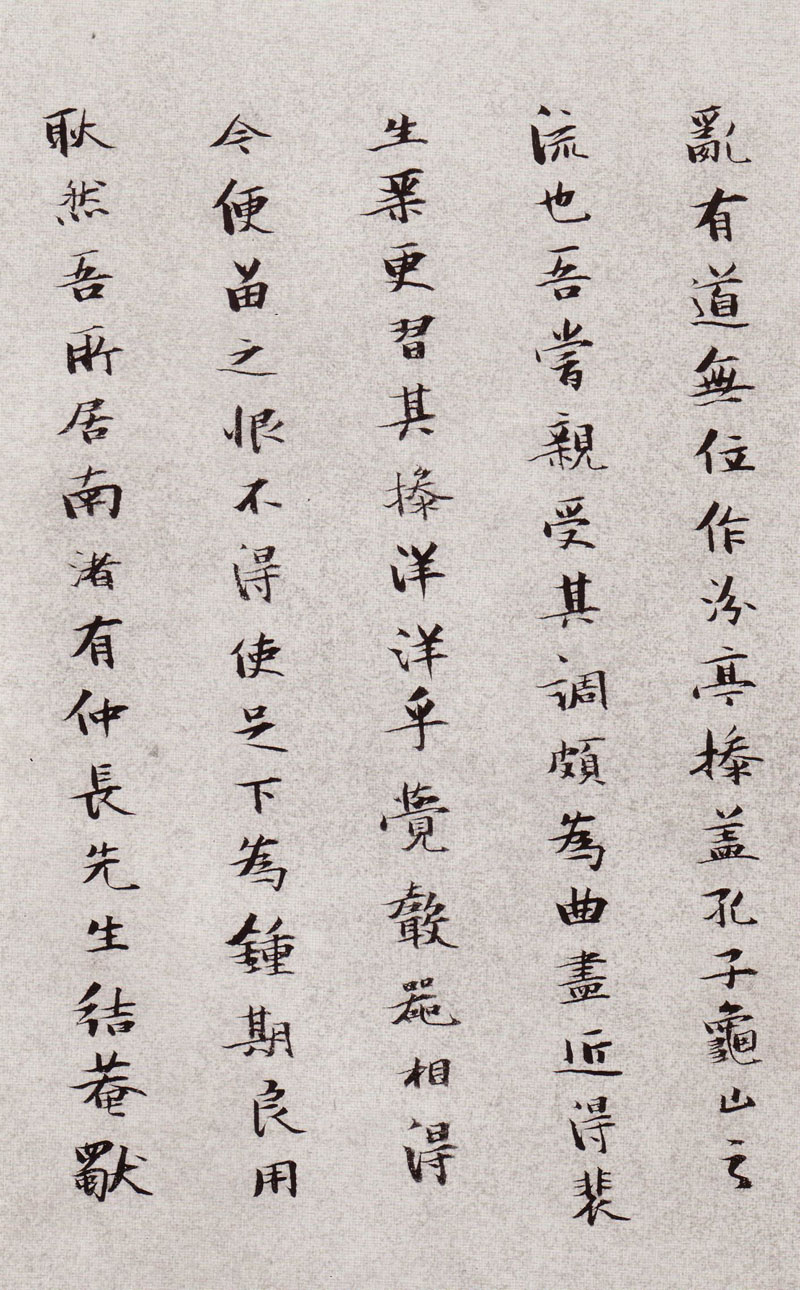 亂有道無位作汾亭操蓋孔子龜山之
流也吾嘗親受其調頗為曲盡近得裴
生琹更習其操洋洋乎覺聲器相得
今便畄之恨不得使足下為鍾期良用
耿然吾所居南渚有仲長先生結菴獨